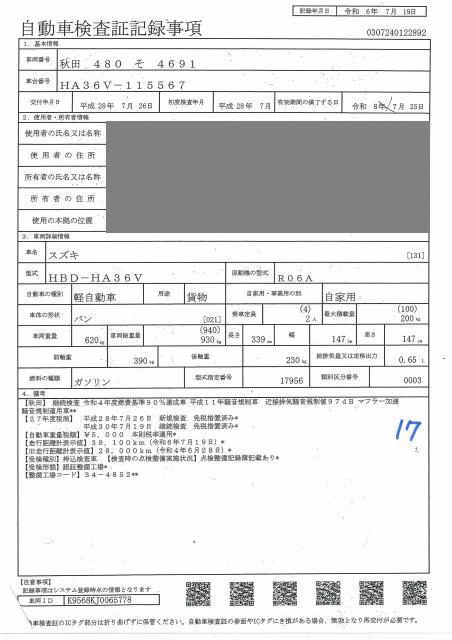 記録年月日 令和 6年 7月 19日
自動車検査証記録事項
0307240122892
1. 基本情報
車両番号 秋田 480 そ 4691
車台番号 HA36V-115567
交付年月日 平成 28年 7月 26日 初度検査年月 平成 28年 7月 有効期間の満了する日 令和 8年 7月 25日
2. 使用者・所有者情報
使用者の氏名又は名称
使用者の住所
所有者の氏名又は名称
所有者の住所
使用の本拠の位置
3. 車両詳細情報
車名 スズキ [131]
型式 HBD-HA36V 原動機の型式 R06A
自動車の種別 軽自動車 用途 貨物 自家用・事業用の別 自家用
車体の形状 バン [021] 乗車定員 (4) 2人 最大積載量 (100) 200kg
車両重量 620kg 車両総重量 (940) 930kg 長さ 339cm 幅 147cm 高さ 147cm
前軸重 390kg 後軸重 230kg 総排気量又は定格出力 0.65 L
燃料の種類 ガソリン 型式指定番号 17956 類別区分番号 0003
4. 備考
【秋田】 継続検査 令和4年度燃費基準90%達成車 平成11年騒音規制車 近接排気騒音規制値97dB マフラー加速
騒音規制適用車**
【27年度税制】 平成28年7月26日 新規検査 免税措置済み*
平成30年7月19日 継続検査 免税措置済み*
【自動車重量税額】¥5,000 本則税率適用*
【走行距離計表示値】39,100km(令和6年7月19日)*
【旧走行距離計表示値】28,000km(令和4年6月28日)*
【受検種別】持込検査車 【検査時の点検整備実施状況】点検整備記録簿記載あり*
【受検形態】認証整備工場*
【整備工場コード】34-4852**
17
【注意事項】
記録事項はシステム登録時点の情報となります
車両ID K9568KJ0065778
車検査証のICタグ部分は折り曲げずに保管ください。自動車検査証の券面やICタグにき損がある場合、無効となり再交付が必要です。